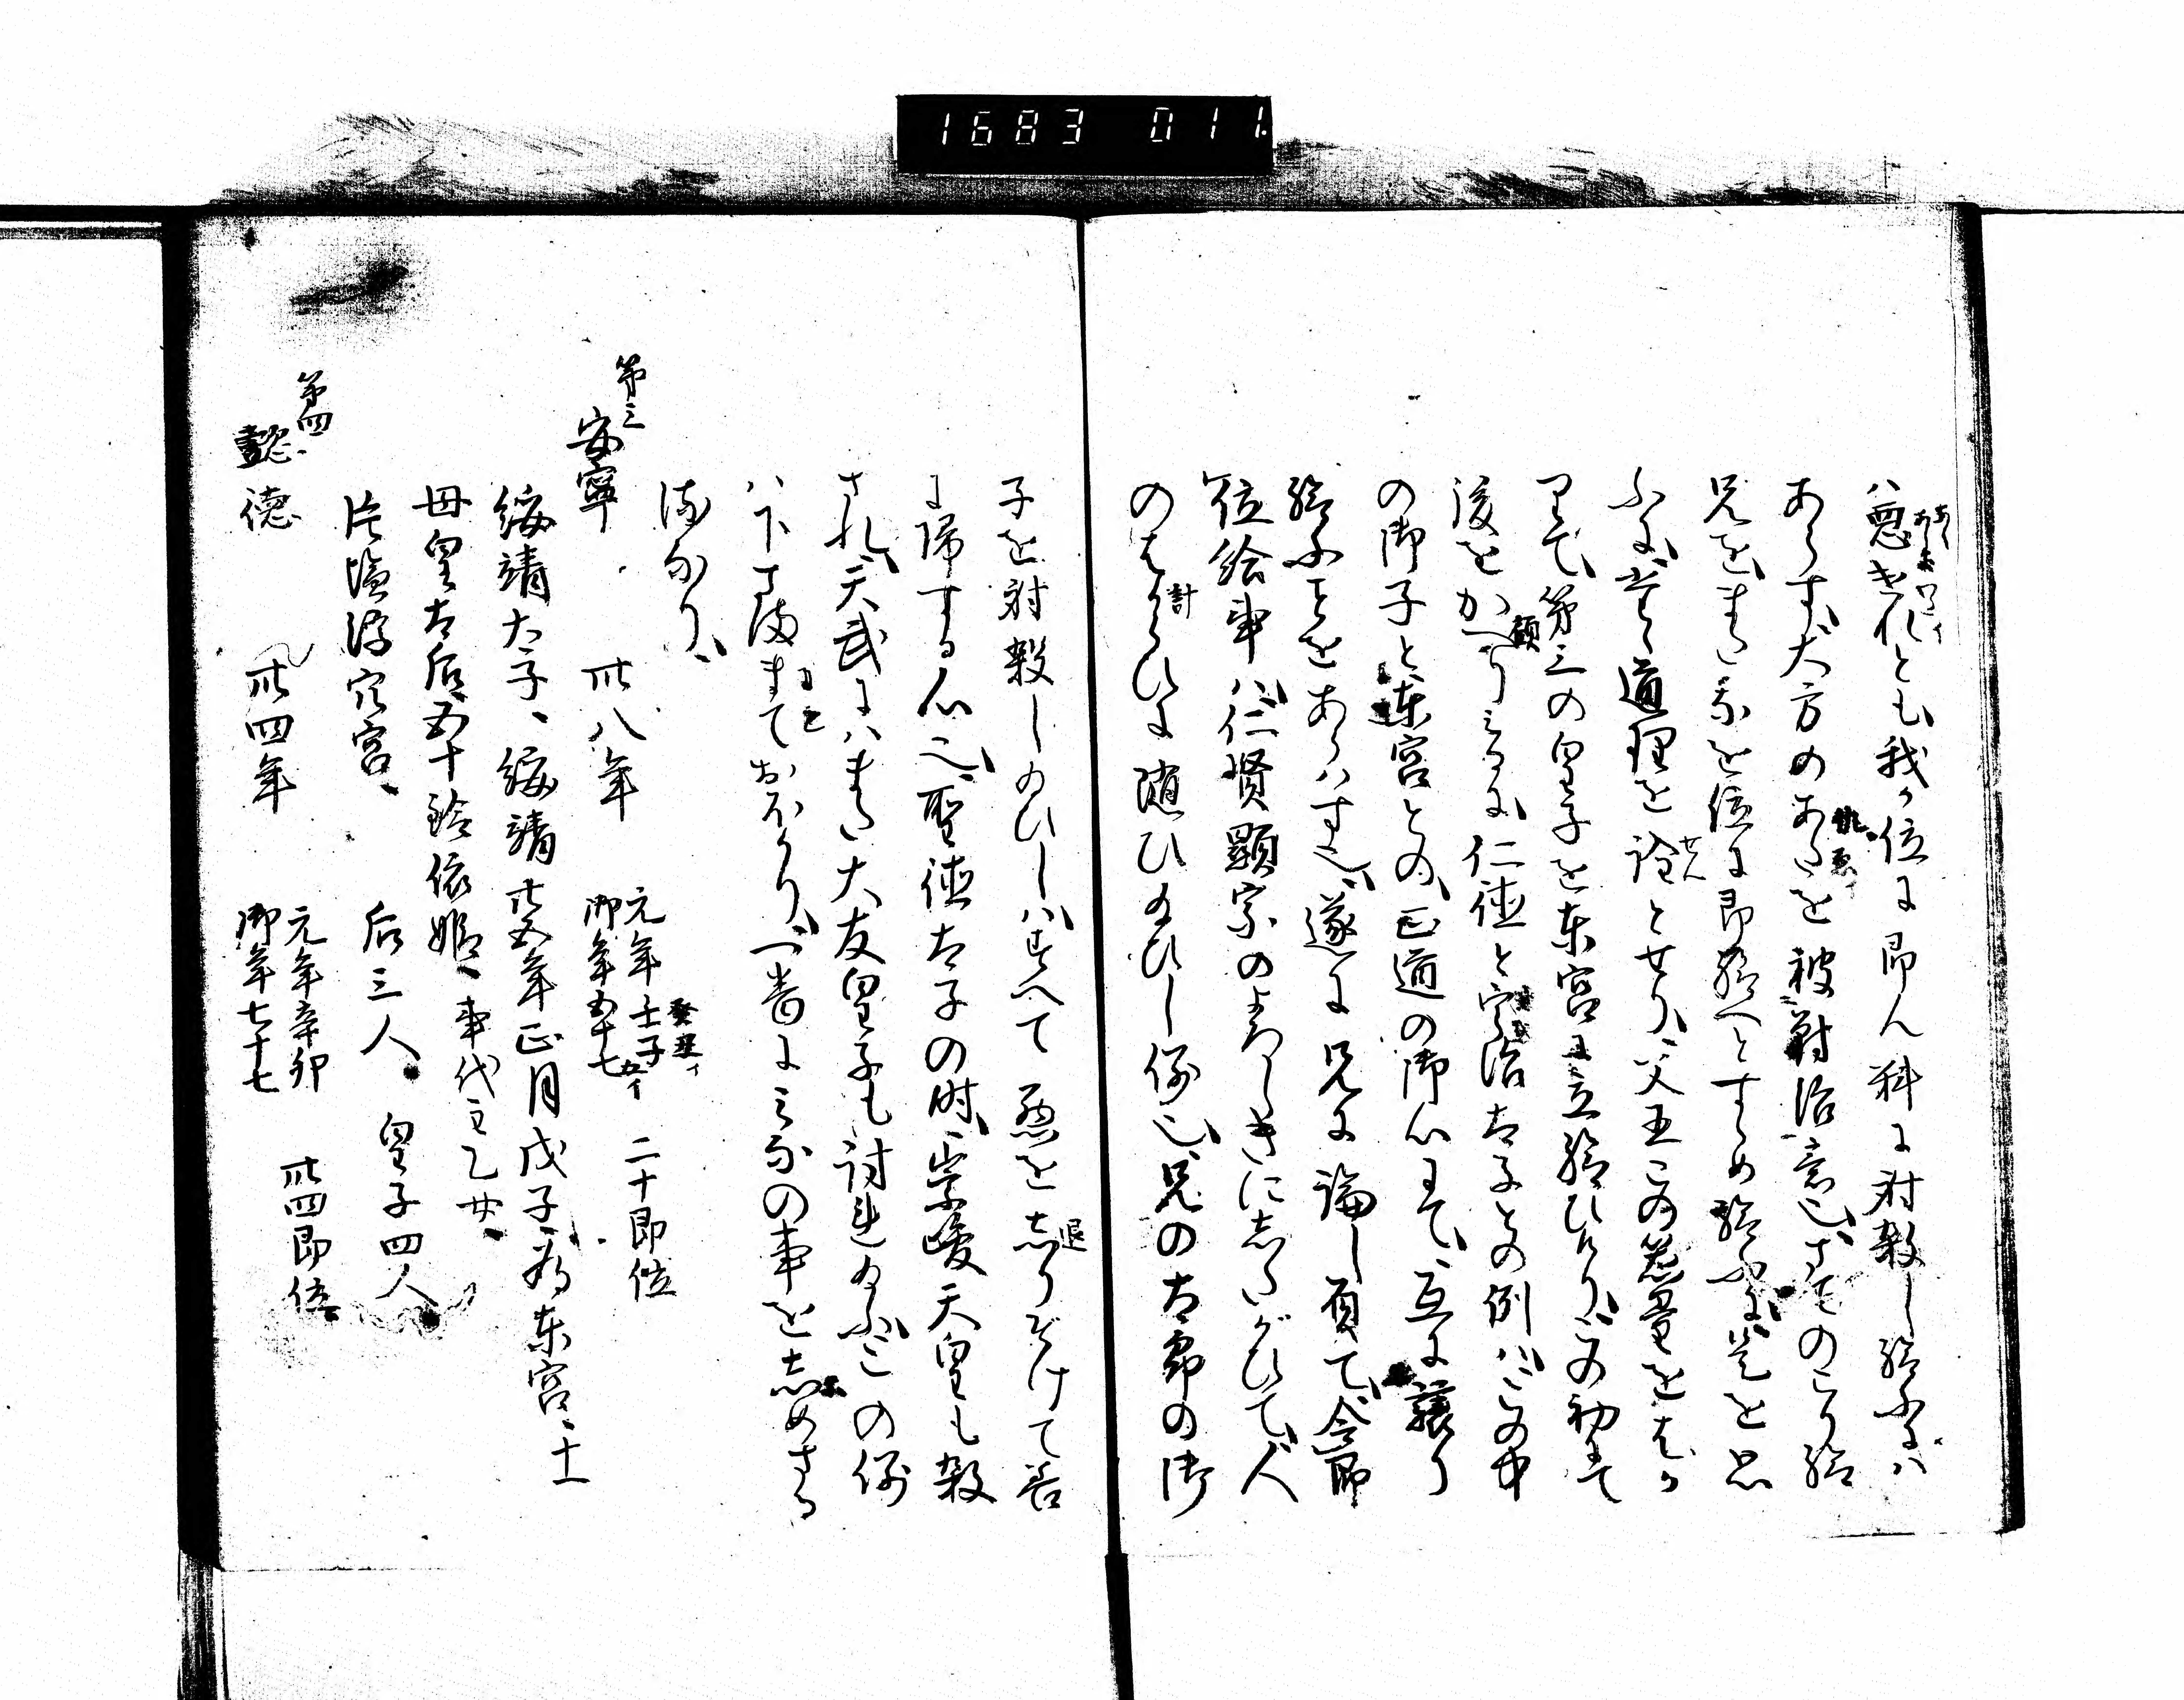 1683 011.
ハ悪キれとも我カ位に即ん料に射殺し給ふにハ
あらす大方のあたを被対治意也さてのこり給
兄をまつ我を位に即給へとすゝめ給ふに是を思
ふに宜く道理を詮とせり父王この器量をはか
りて第三の皇子を東宮に立給ひけりこの初にて
後をかへりみるに仁徳と宇治太子との例ハこの中
の御子と東宮との正道の御心にて互に譲り
給ふことをあらハす也遂に兄に論し負て令即
位給事ハ仁賢顕宗のよろしきにしたがひて人
のはからひに随ひ給ひし例也兄の太郎の御
計
顧
せん
子を射殺し給ひしハすへて悪をしりぞけて善
退
に帰する心也聖徳太子の時崇峻天皇も殺
され天武にハまた大友皇子も討れ給ふこの例
ハ下ざままておほかり一番にみなの事をしめさる
る成り
第三
安寧
卅八年
元年壬子
御年五十七
癸丑イ
二十即位
綏靖太子、綏靖廿五年正月戊子為東宮、十一
母皇太后五十鈴依姫、事代主乙女、
片塩浮穴宮、
后三人、皇子四人
第四
懿徳
卅四年
元年辛卯
御年七十七
卅四即位